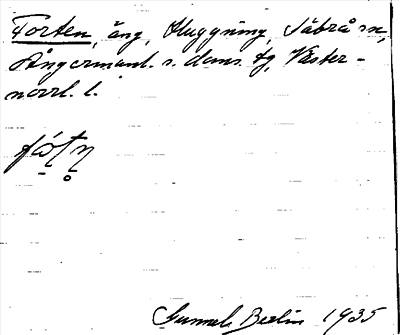 Forten, äng, Muggning, Säbrå sn,
Ångermanl. s. doms. tg, Väster-
norrl. l.
Gunnel Berlin 1935